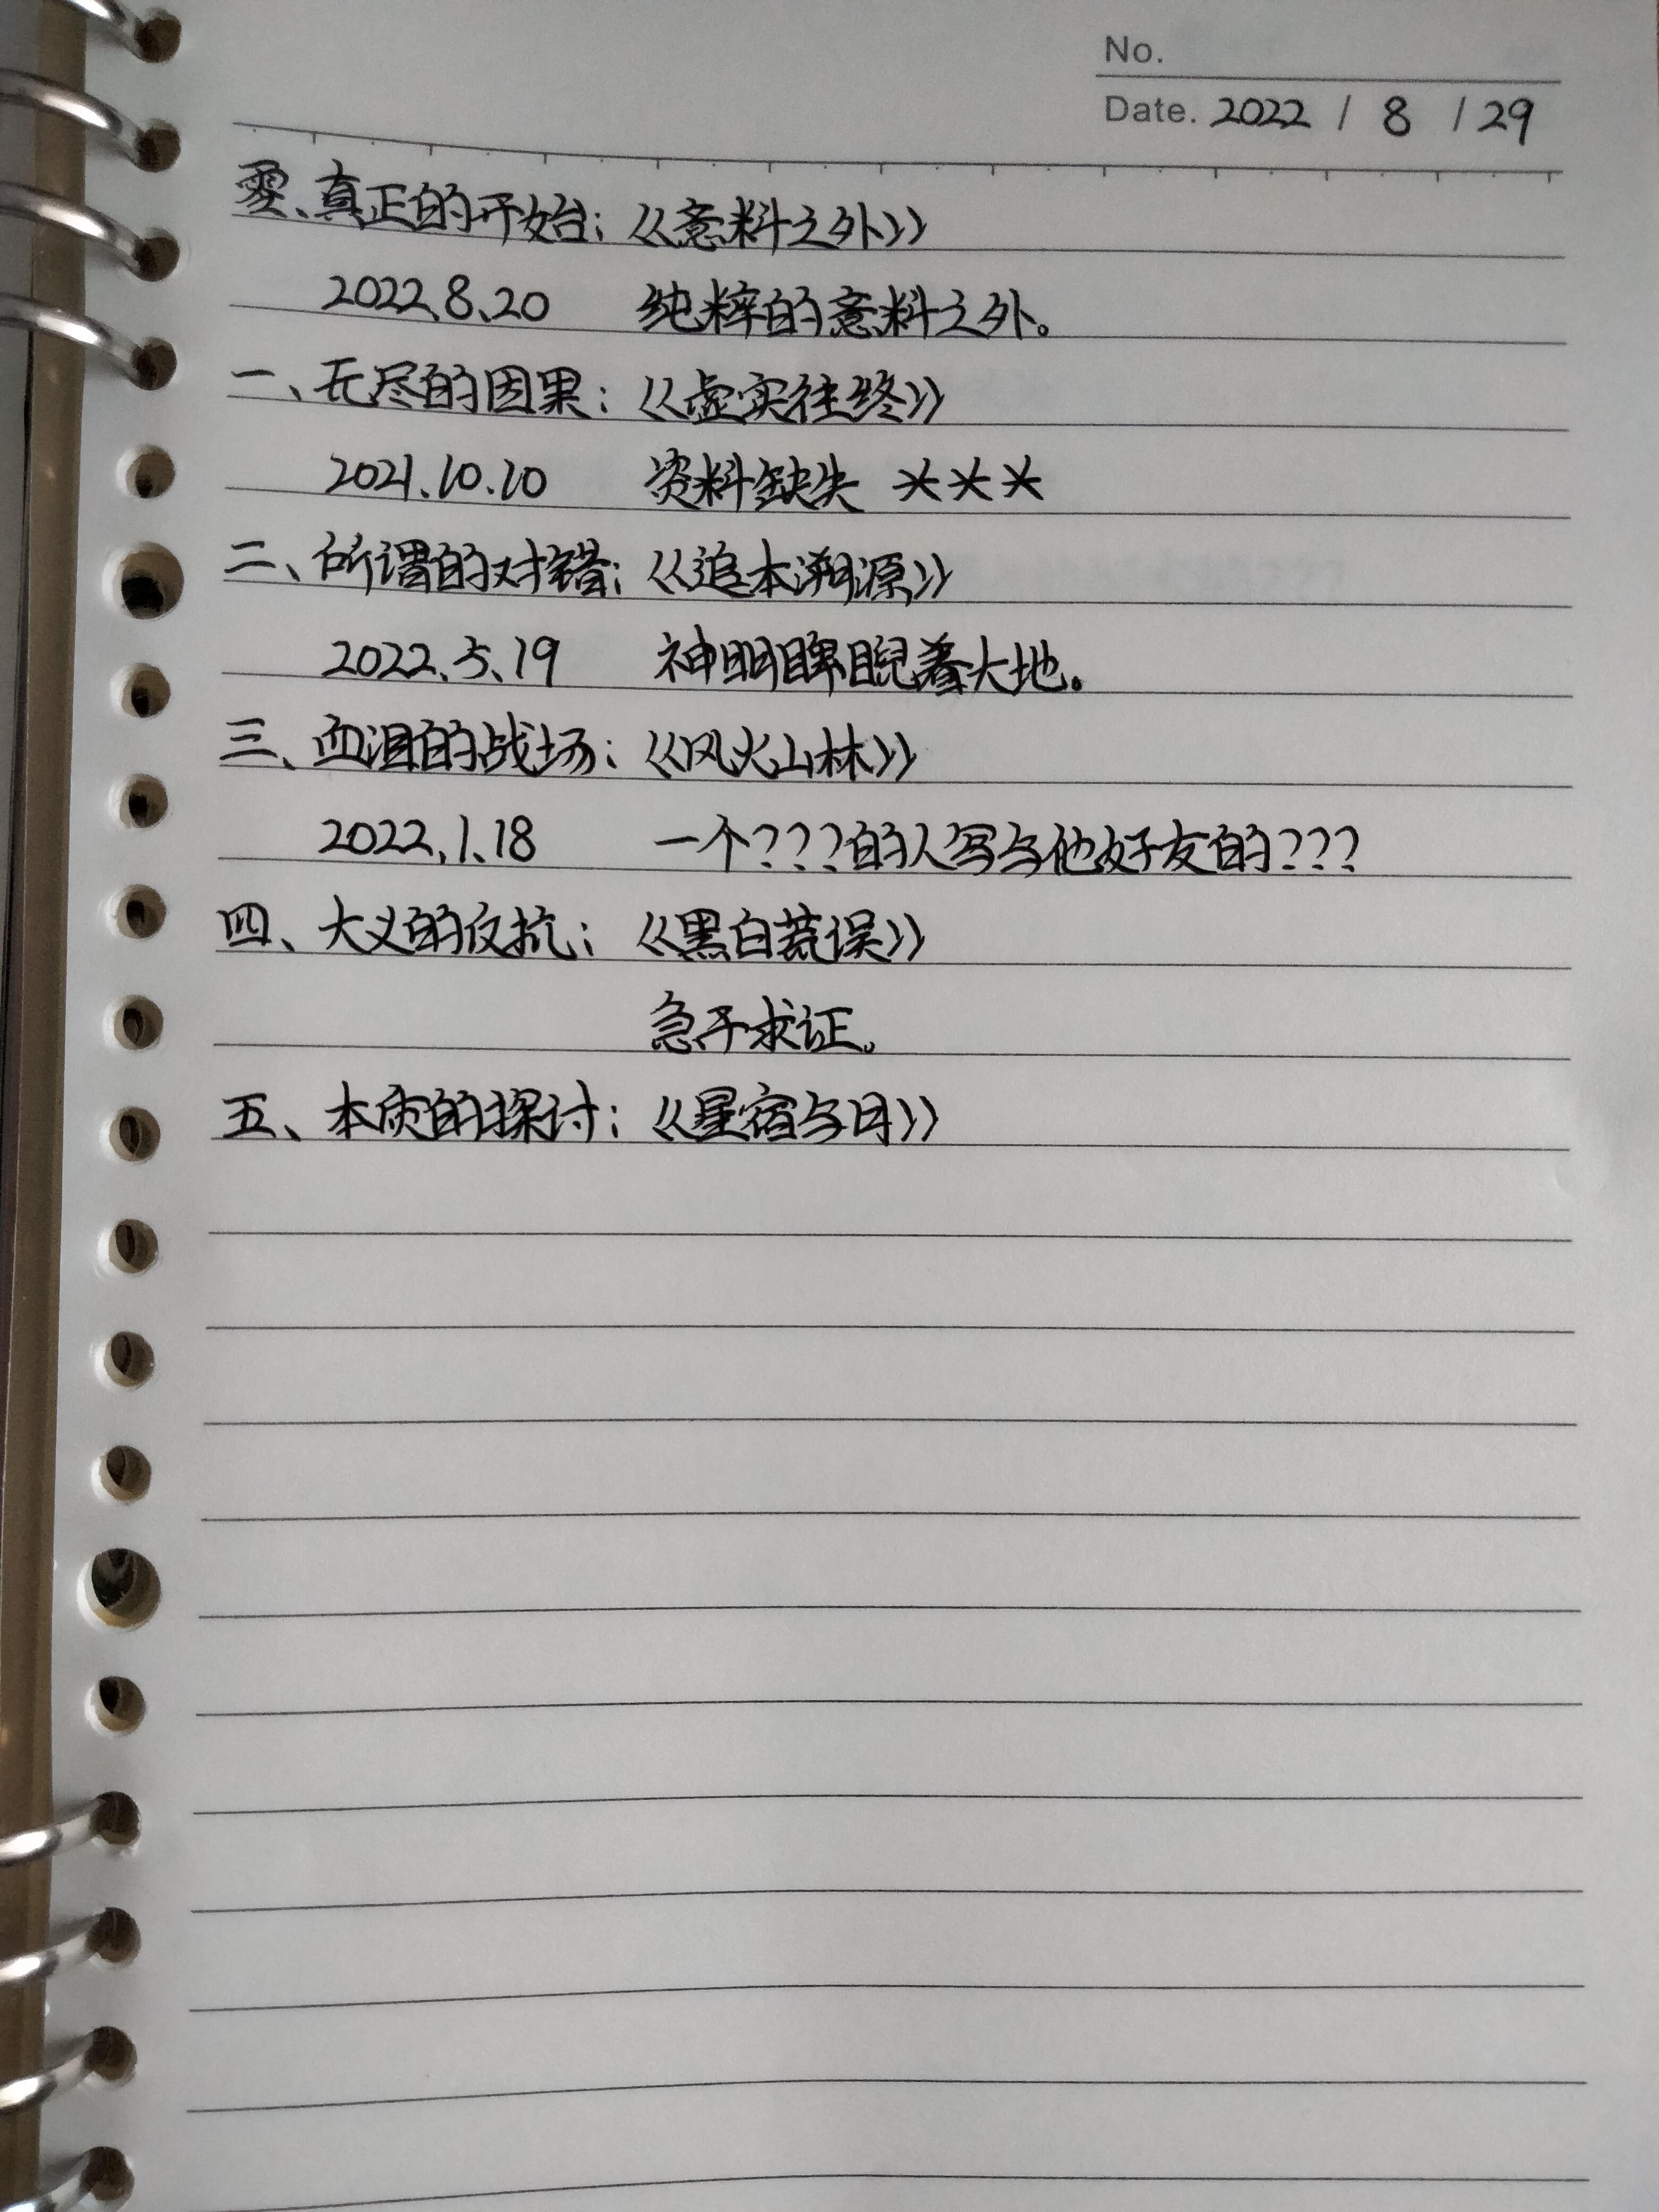 No.
Date. 2022 / 8 / 29
零、真正的开始：《意料之外》
2022.8.20 纯粹的意料之外。
一、无尽的因果：《虚实往终》
2021.10.10 资料缺失 ***
二、所谓的对错：《追本溯源》
2022.5.19 神明睥睨着大地。
三、血泪的战场：《风火山林》
2022.1.18 一个???的人写与他好友的???
四、大义的反抗：《黑白荒误》
急于求证。
五、本质的探讨：《星宿与月》